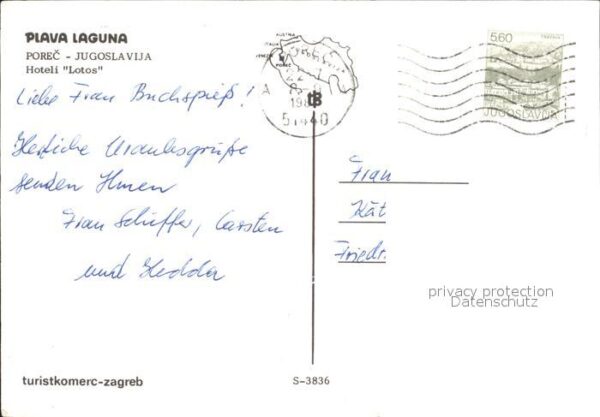 PLAVA LAGUNA
POREČ - JUGOSLAVIJA
Hoteli "Lotos"
Liebe Frau Buchspieß!
Herzliche Urlaubsgrüße
senden Ihnen
Frau Schiffer, Carsten
und Hedda
AUSTRIA
ITALIA
POREČ
A
51440
5,60
JUGOSLAVIJA
Frau
Kät
Friedr.
privacy protection
Datenschutz
turistkomerc-zagreb
S-3836